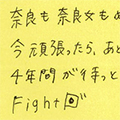 奈良も奈良女もめ
今頑張ったら、あと
4年間が待っと
Fight